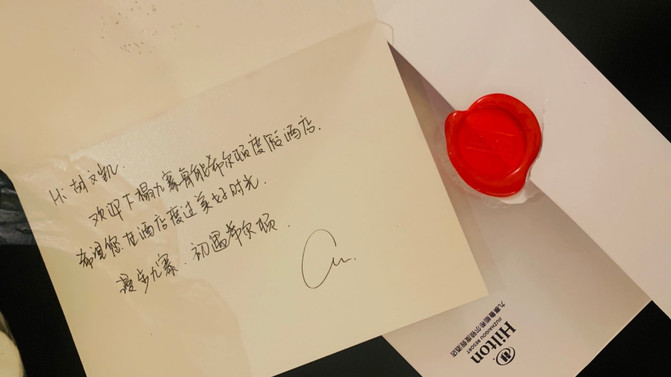 Hi 胡文凯.
欢迎下榻九寨鲁能希尔顿度假酒店.
希望您在酒店度过美好时光.
漫步九寨. 初遇希尔顿.
Hilton
JIUZHAIGOU RESORT
九寨鲁能希尔顿度假酒店